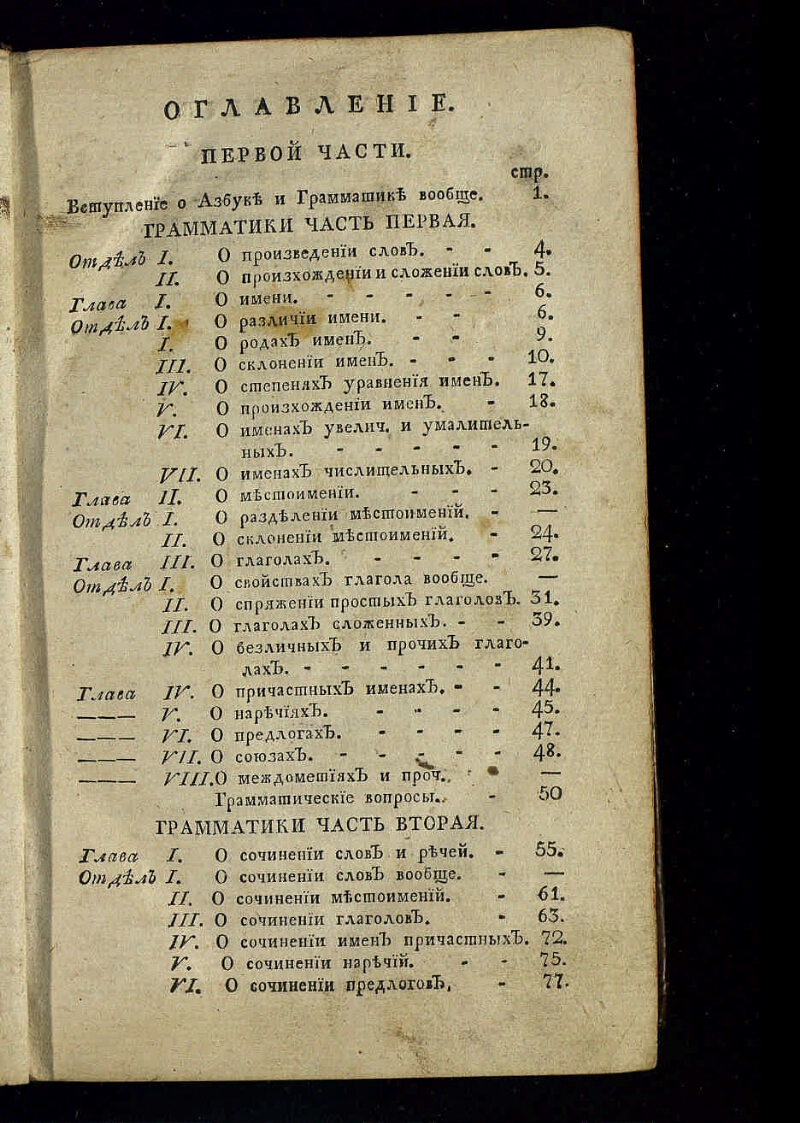 ОГЛАВЛЕНІЕ.
ПЕРВОЙ ЧАСТИ.
стр.
Вступленїе о Азбукѣ и Грамматикѣ вообще. 1.
ГРАММАТИКИ ЧАСТЬ ПЕРВАЯ.
Отдѣлъ I. О произведенїи словъ. - - 4.
II. О произхожденїи и сложенїи словъ. 5.
Глава I. О имени. - - - - - 6.
Отдѣлъ I. О различїи имени. - - 6.
I. О родахъ именъ. - - 9.
III. О склоненїи именъ. - - - 10.
IV. О степеняхъ уравненїя именъ. 17.
V. О произхожденїи именъ. - 18.
VI. О именахъ увелич. и умалитель-
ныхъ. - - - - - 19.
VII. О именахъ числищельныхъ. - 20.
Глава II. О мѣстоименїи. - - - 23.
Отдѣлъ I. О раздѣленїи мѣстоименїй. - —
II. О склоненїи мѣстоименїй. - 24.
Глава III. О глаголахъ. - - - - 27.
Отдѣлъ I. О свойствахъ глагола вообще. —
II. О спряженїи простыхъ глаголовъ. 31.
III. О глаголахъ сложенныхъ. - - 39.
IV. О безличныхъ и прочихъ глаго-
лахъ. - - - - - - 41.
Глава IV. О причастныхъ именахъ. - - 44.
—— V. О нарѣчїяхъ. - - - - 45.
—— VI. О предлогахъ. - - - - 47.
—— VII. О союзахъ. - - - - - 48.
—— VIII. О междометїяхъ и проч. - —
Грамматическїе вопросы. - 50
ГРАММАТИКИ ЧАСТЬ ВТОРАЯ.
Глава I. О сочиненїи словъ и рѣчей. - 55.
Отдѣлъ I. О сочиненїи словъ вообще. - —
II. О сочиненїи мѣстоименїй. - 61.
III. О сочиненїи глаголовъ. - 63.
IV. О сочиненїи именъ причастныхъ. 72.
V. О сочиненїи нарѣчїй. - - 75.
VI. О сочиненїи предлоговъ, - 77.